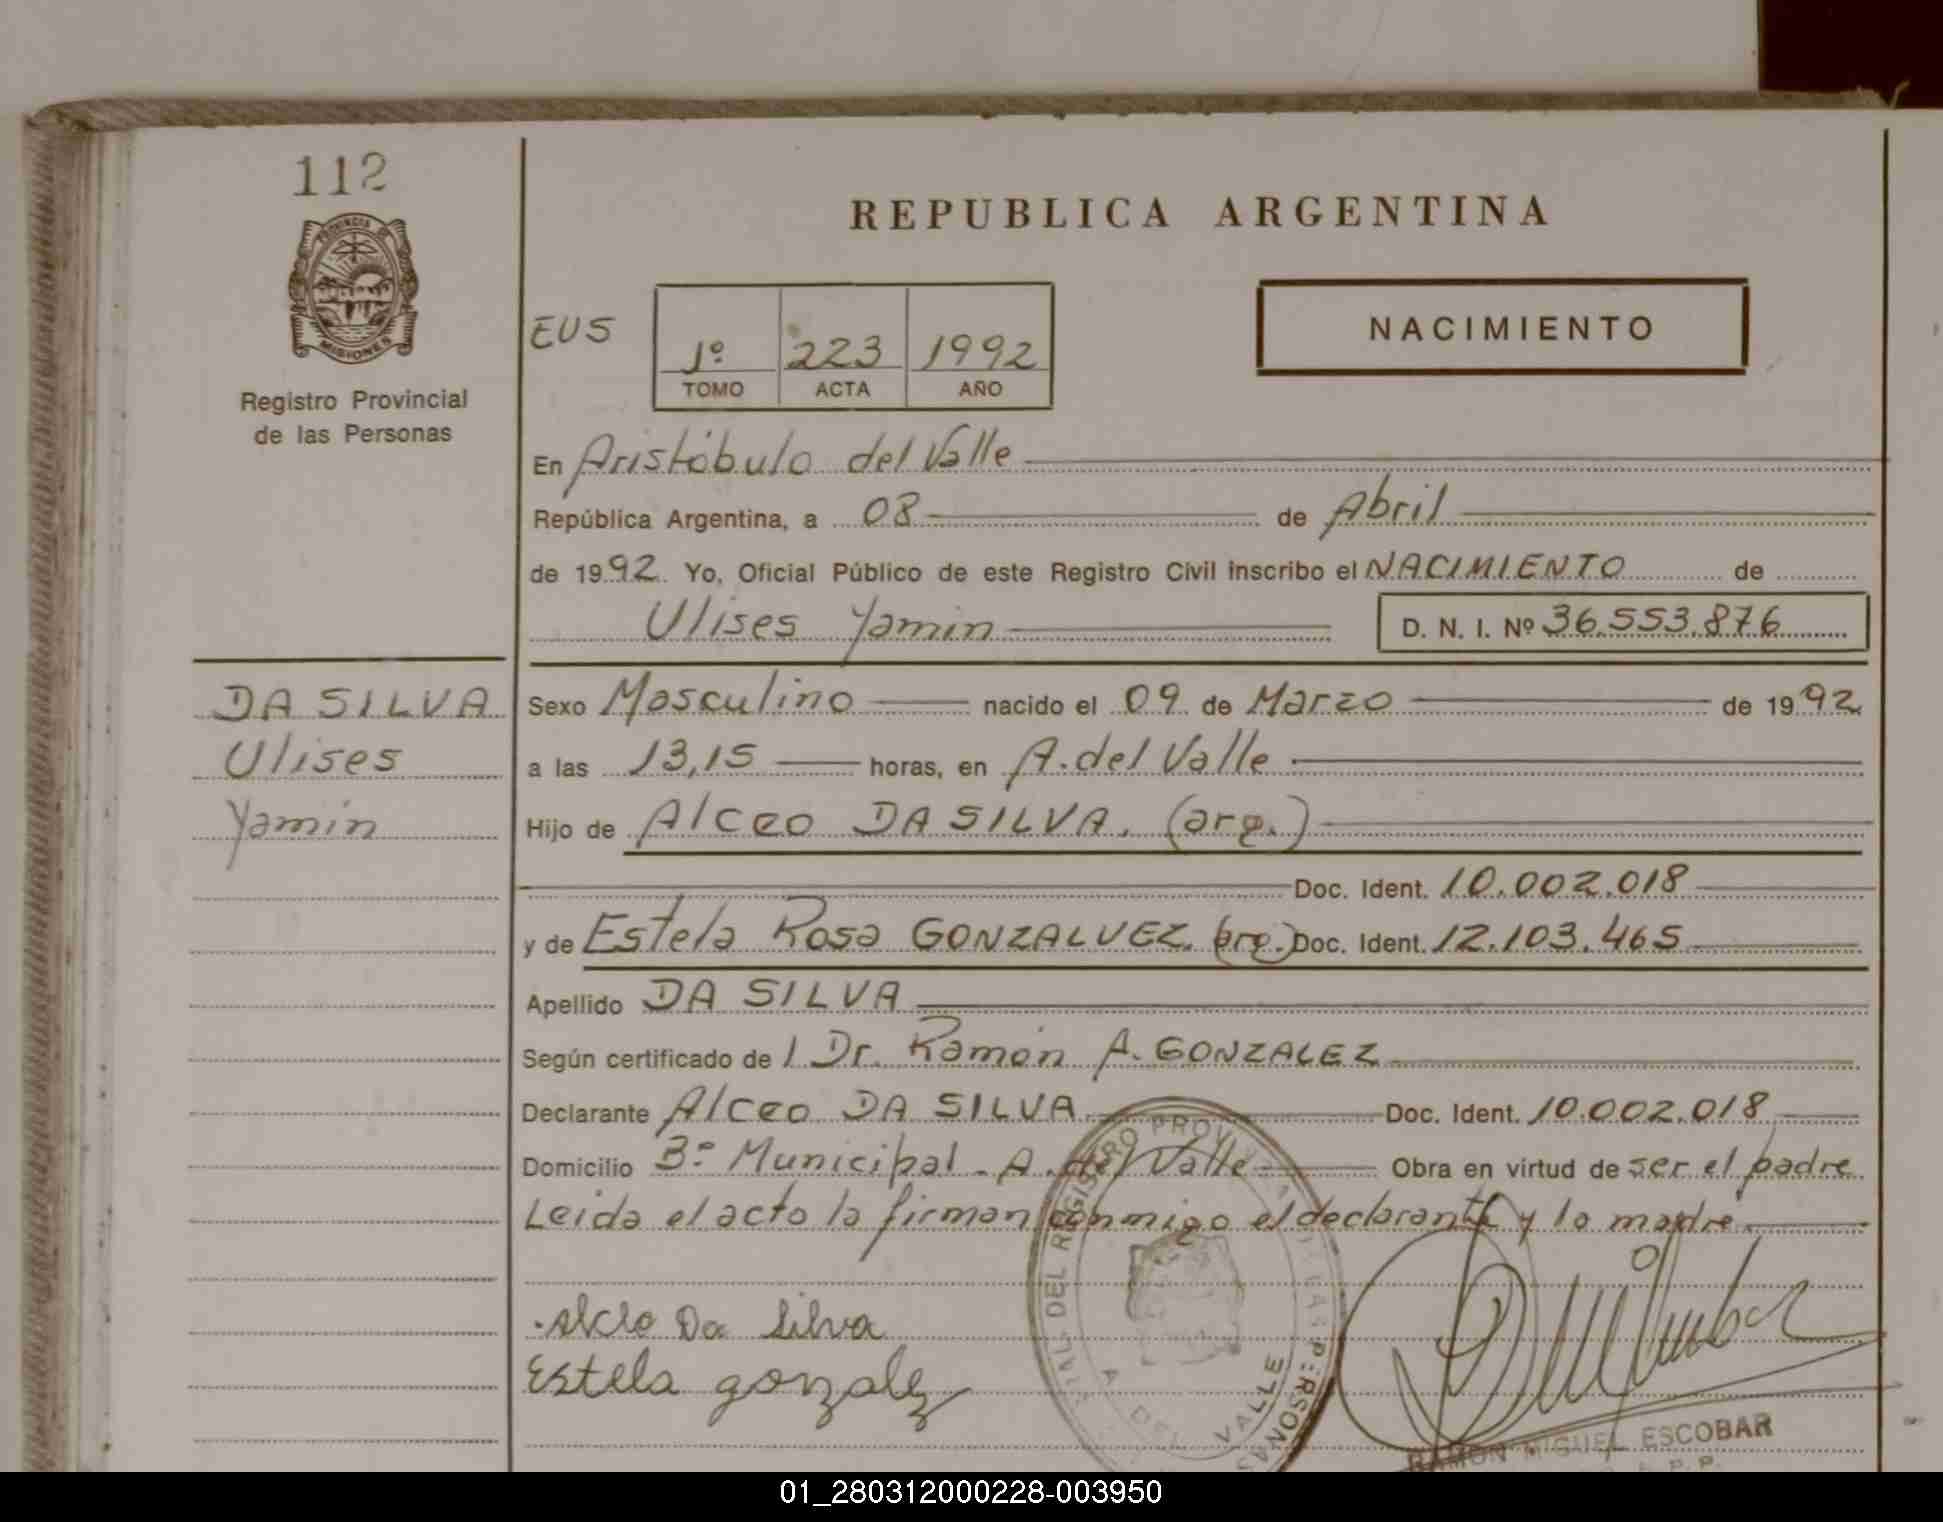 112
PROVINCIA DE
MISIONES
Registro Provincial
de las Personas
REPUBLICA ARGENTINA
EUS
1º 223 1992
TOMO ACTA AÑO
NACIMIENTO
En Aristóbulo del Valle
República Argentina, a 08 de Abril
de 1992 Yo, Oficial Público de este Registro Civil inscribo el NACIMIENTO de
Ulises Yamin D. N. I. Nº 36.553.876
DA SILVA
Ulises
Yamin
Sexo Masculino nacido el 09 de Marzo de 1992
a las 13,15 horas, en A. del Valle
Hijo de Alceo DA SILVA. (arg.)
Doc. Ident. 10.002.018
y de Estela Rosa GONZALVEZ. (arg.) Doc. Ident. 12.103.465
Apellido DA SILVA
Según certificado de l Dr. Ramón A. GONZALEZ
Declarante Alceo DA SILVA Doc. Ident. 10.002.018
Domicilio Bº Municipal - A. del Valle Obra en virtud de ser el padre
Leida el acto la firman conmigo el declarante y la madre.
Alceo Da Silva
Estela gonzalez
DEL REGISTRO PROVINCIAL DE LAS PERSONAS
A. DEL VALLE
RAMON MIGUEL ESCOBAR
R. P. P.
01_280312000228-003950